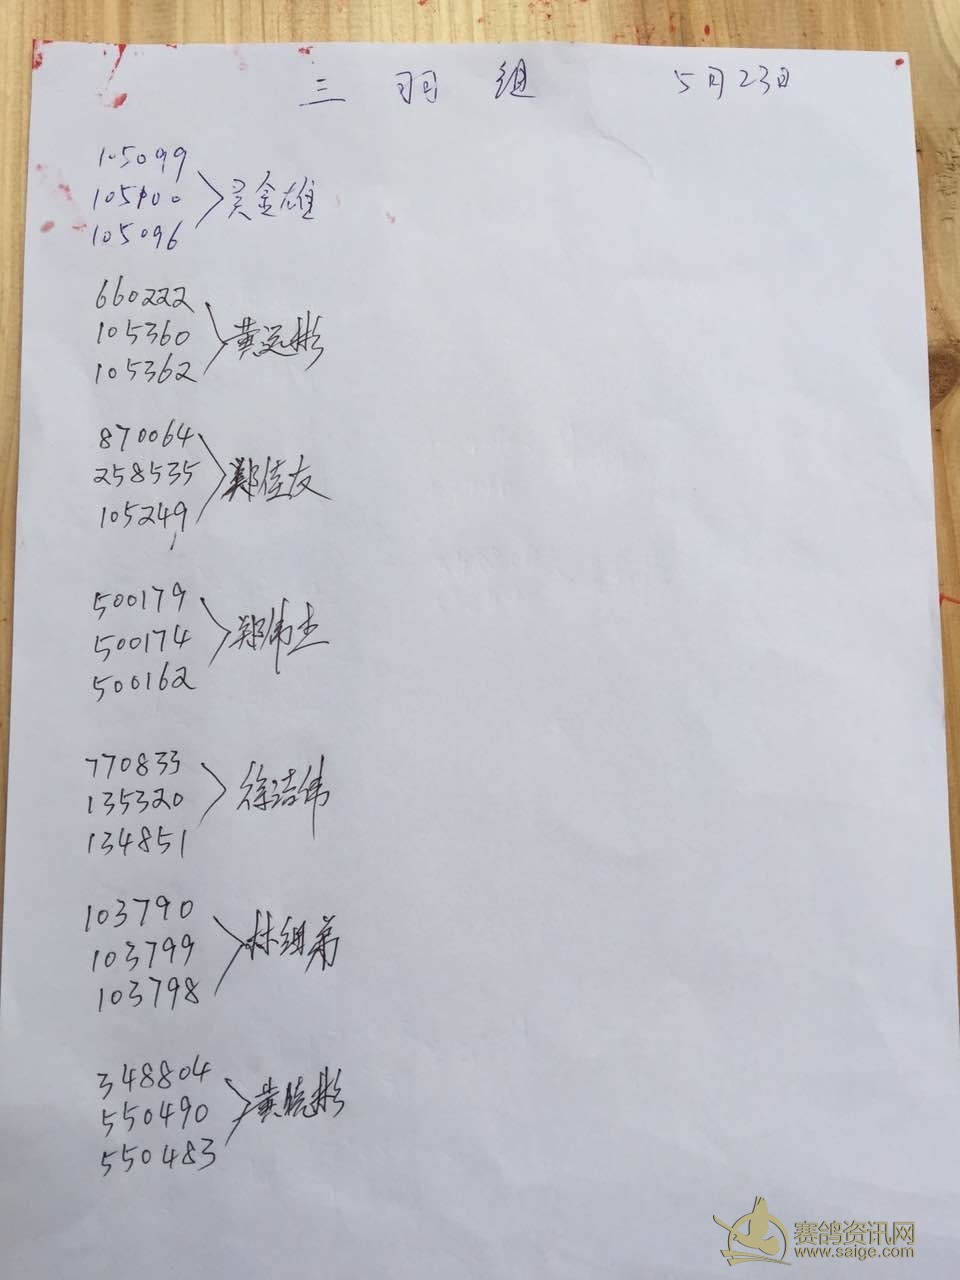 三 羽 组 5月23日
105099
105100 吴金雄
105096
660222
105360 黄远彬
105362
870064
258535 郑佳友
105249
500179
500174 郑伟杰
500162
770833
135320 徐洁伟
134851
103790
103799 林组弟
103798
348804
550490 黄晓彬
550483
赛鸽资讯网
www.saige.com